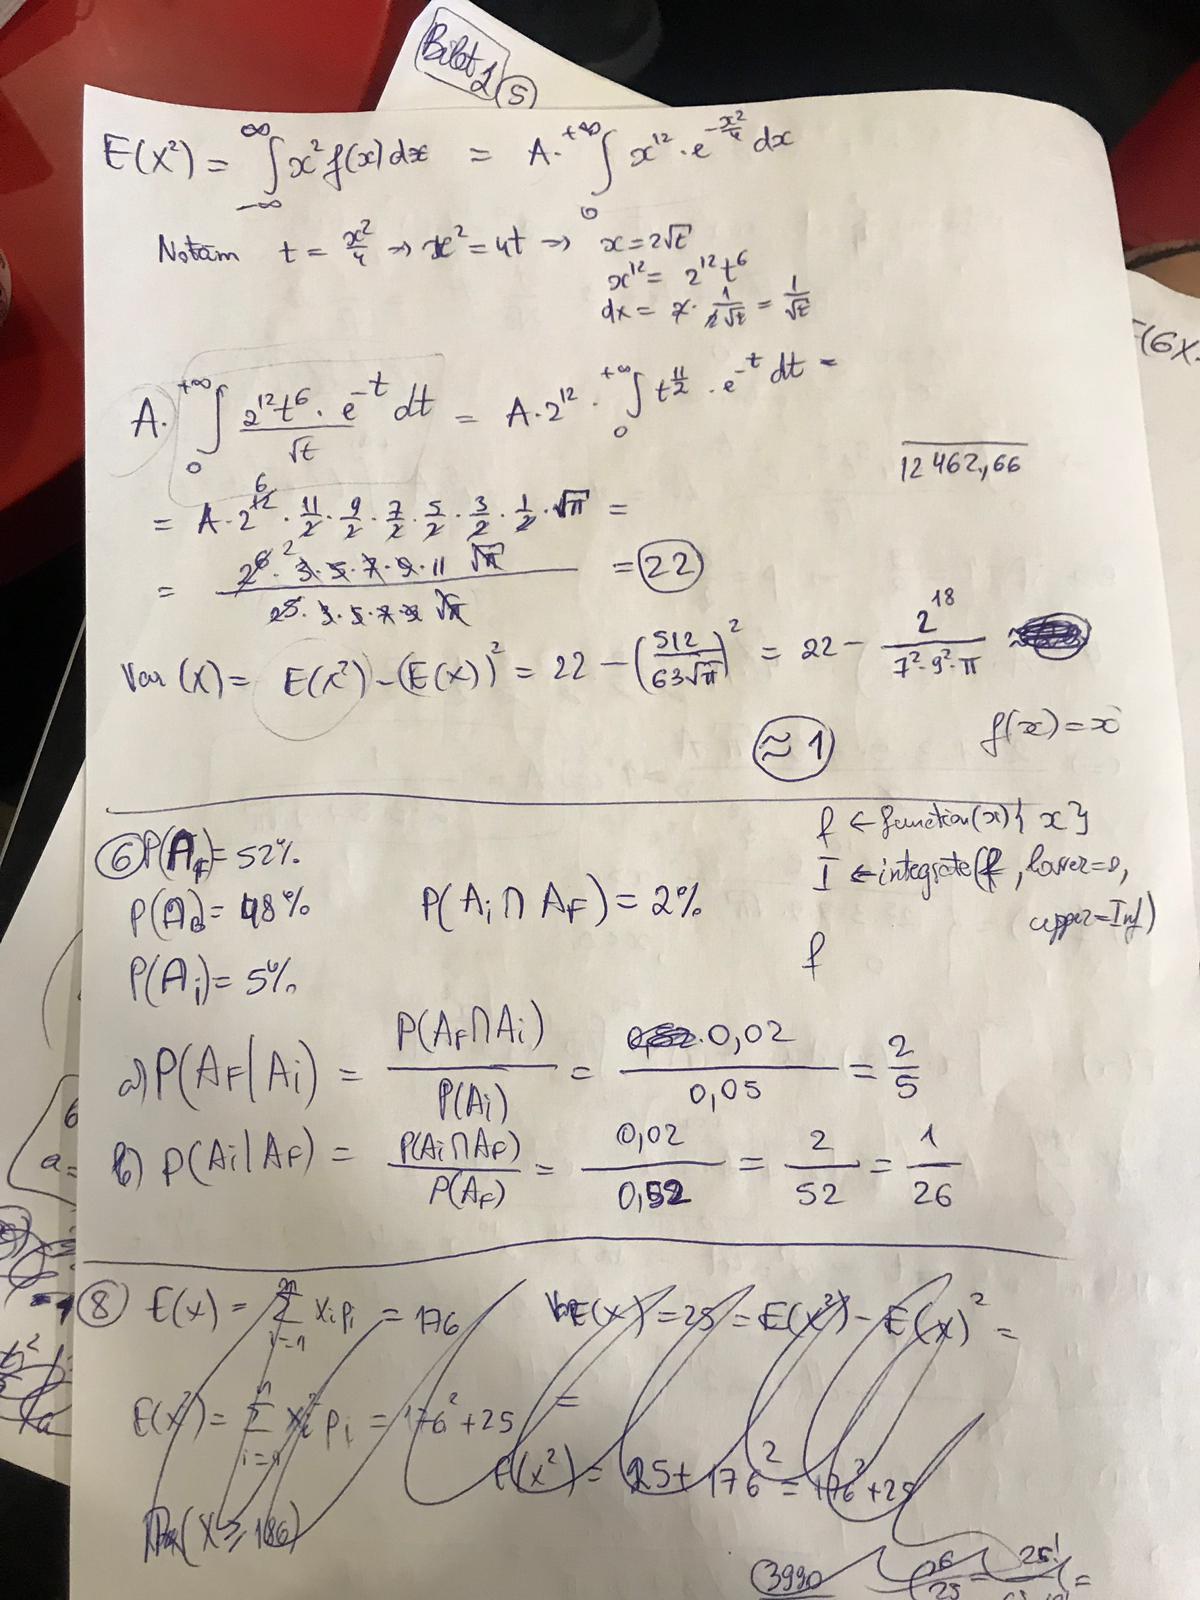 Bilet 1 (5)
E(X²) = ∫_{-∞}^{∞} x² f(x) dx = A · ∫_{0}^{+∞} x¹² · e^{-x²/4} dx
Notăm t = x²/4 → x² = 4t → x = 2√t
x¹² = 2¹² t⁶
dx = 2 · 1/(2√t) = 1/√t
F(6X-
A · ∫_{0}^{+∞} (2¹² t⁶ · e^{-t} dt)/√t = A · 2¹² · ∫_{0}^{+∞} t^{11/2} · e^{-t} dt =
12 462,66
= A · 2^{12 6} · 11/2 · 9/2 · 7/2 · 5/2 · 3/2 · 1/2 · √π =
= (2⁶ · ² 3 · 5 · 7 · 9 · 11 √π)/(2⁵ · 3 · 5 · 7 · 9 √π) = 22
Var(X) = E(X²) - (E(X))² = 22 - (512/(63√π))² = 22 - 2¹⁸/(7² · 9² · π)
≈ 1
f(x) = x
f ← function(x) { x }
I ← integrate(f, lower=0,
upper=Inf)
f
⑥ P(A_F) = 52%
P(A_B) = 48%
P(A_i) = 5%
P(A_i ∩ A_F) = 2%
a) P(A_F | A_i) = P(A_F ∩ A_i)/P(A_i) = 0,02/0,05 = 2/5
b) P(A_i | A_F) = P(A_i ∩ A_F)/P(A_F) = 0,02/0,52 = 2/52 = 1/26
⑧ E(X) = Σ_{i=1}^{n} x_i p_i = 176
Var(X) = 25 = E(X²) - E(X)² =
E(X²) = Σ_{i=1}^{n} x_i² p_i = 176² + 25 =
E(X²) = 25 + 176² = 176² + 25
P(X ≥ 186)
3990